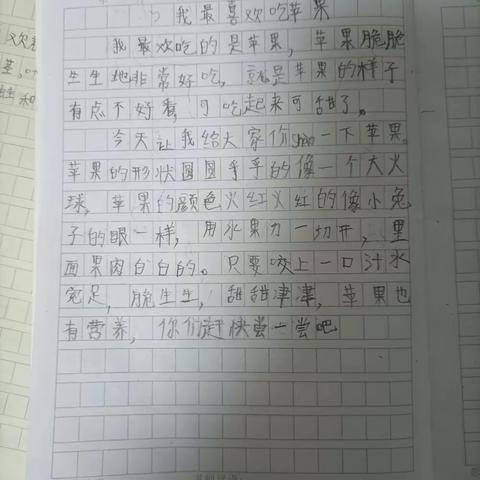 我最喜欢吃苹果
我最欢吃的是苹果，苹果脆脆
生生地非常好吃，就是苹果的样子
有点不好看，可吃起来可甜了。
今天让我给大家介shào一下苹果。
苹果的形状圆圆乎乎的像一个大火
球，苹果的颜色火红火红的像小兔
子的眼一样，用水果刀一切开，里
面果肉白白的。只要咬上一口汁水
充足，脆生生，甜甜津津，苹果也
有营养，你们赶快尝一尝吧